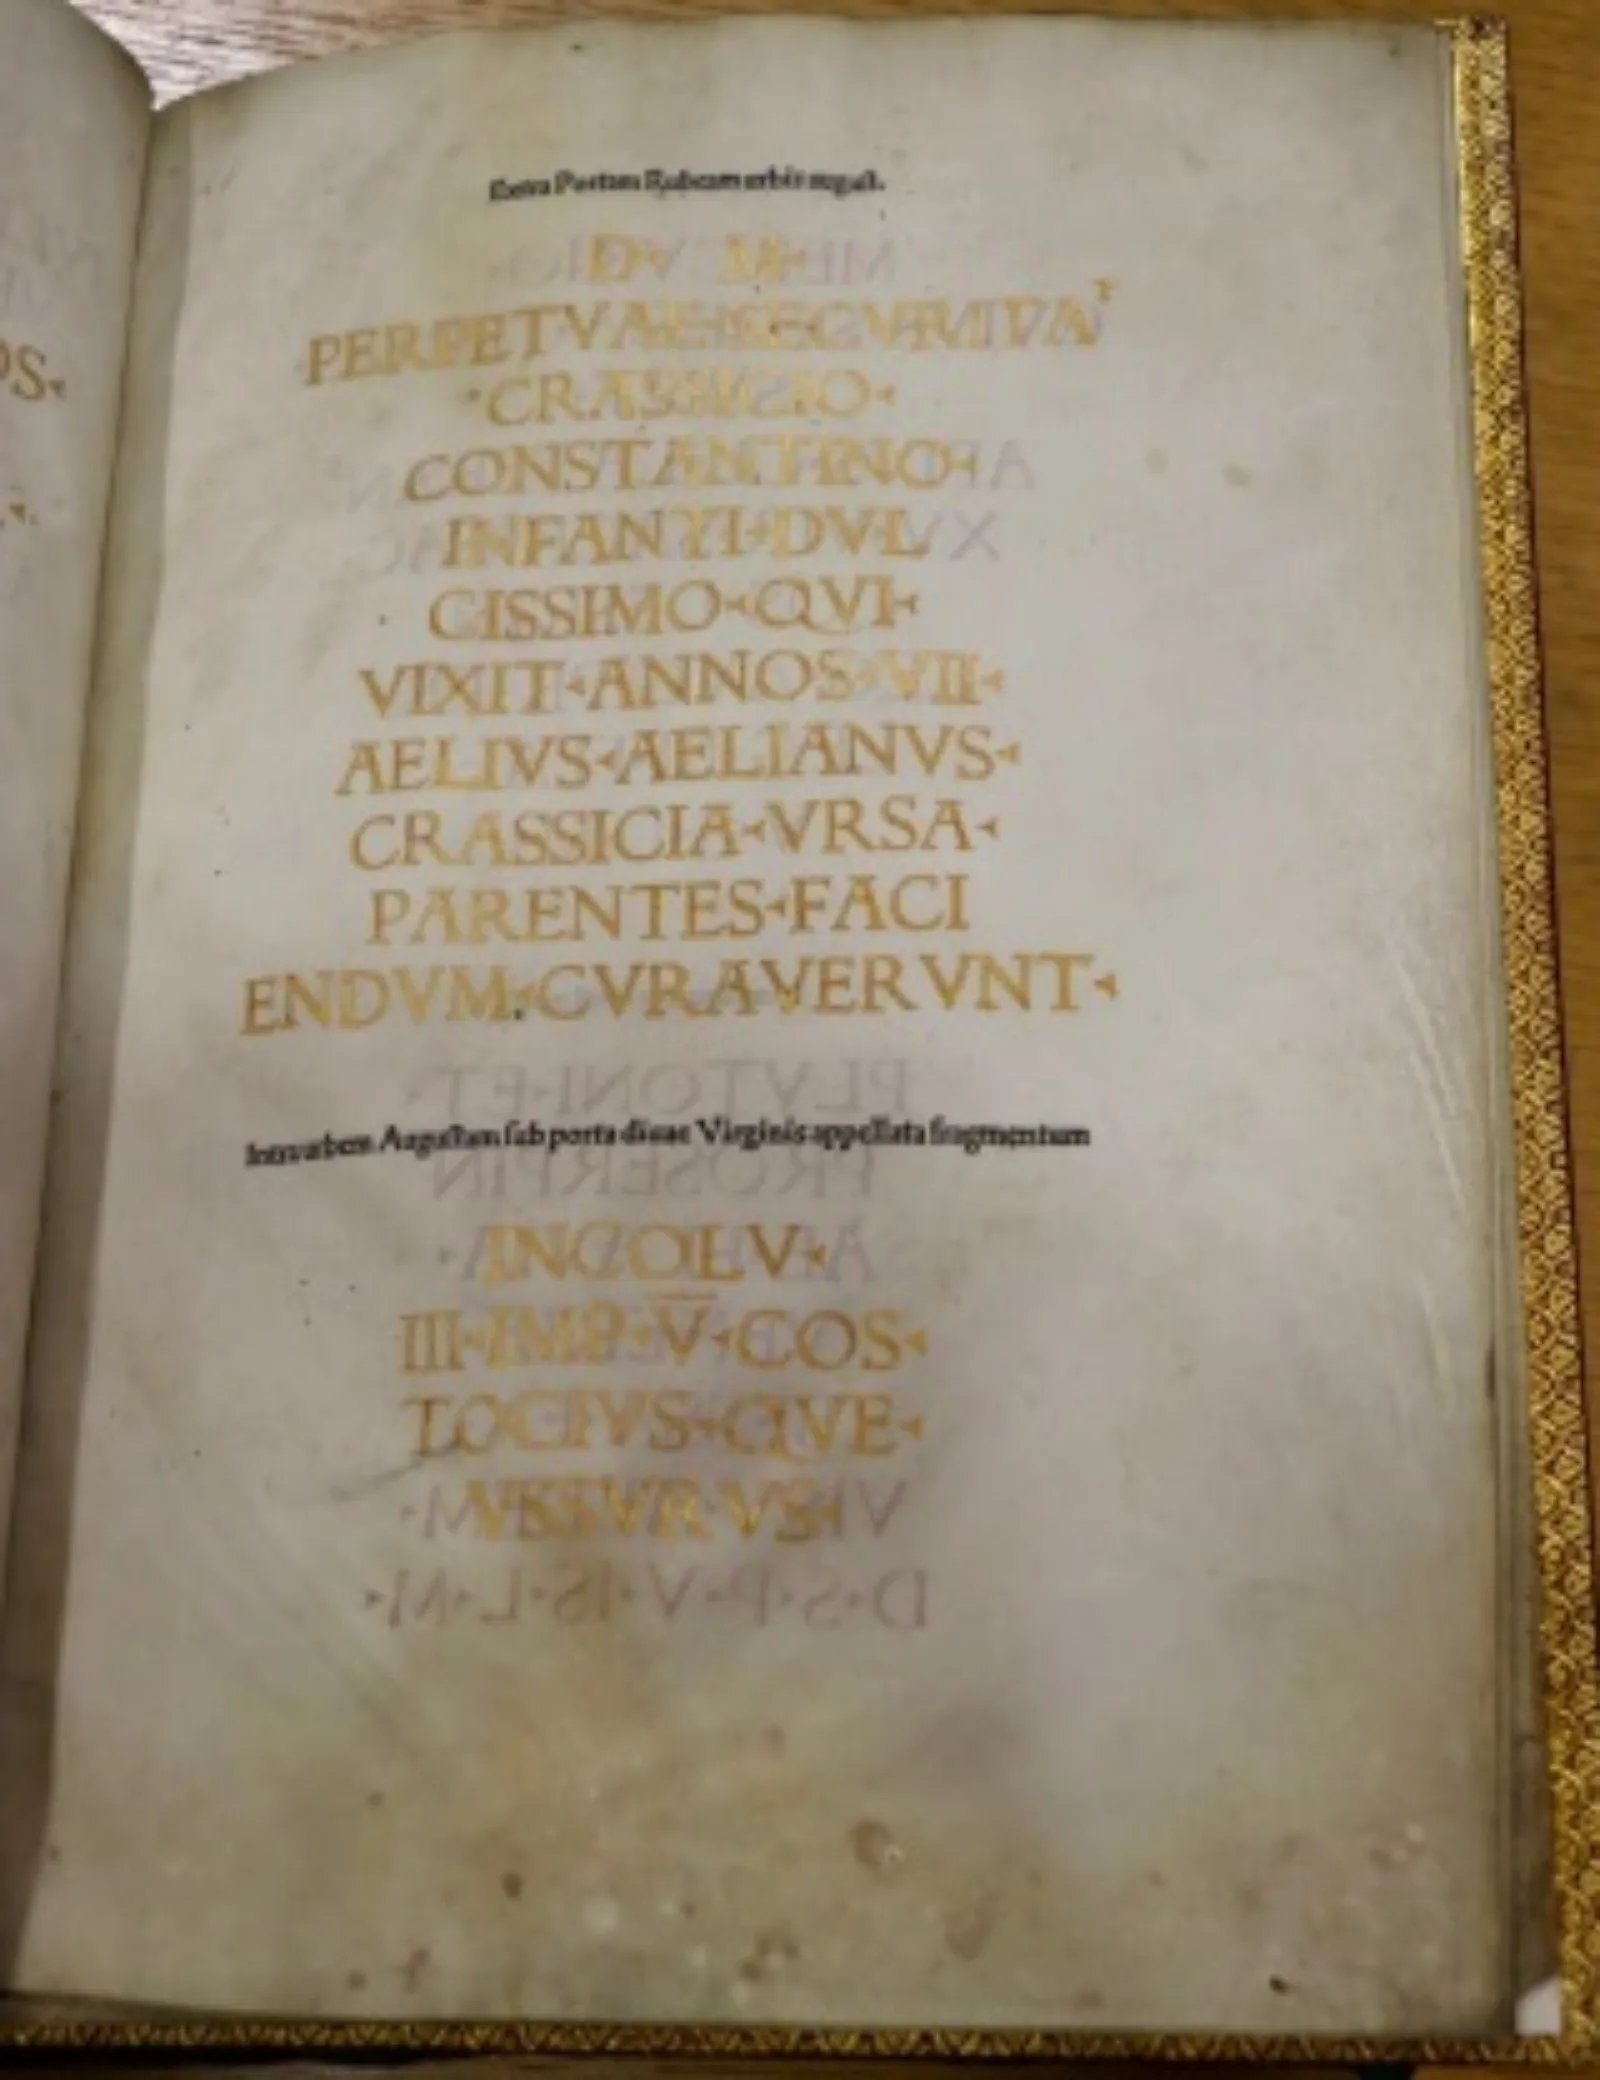 Extra Portam Rubeam urbis august.
D M
PERPETVAE SECVRITA
CRASSICIO
CONSTANTINO
INFANTI DVL
CISSIMO QVI
VIXIT ANNOS VII
AELIVS AELIANVS
CRASSICIA VRSA
PARENTES FACI
ENDVM CVRAVERVNT
Intra urbem Augustam sub porta diuae Virginis appellata fragmentum
INCOLV
III IMP V COS
TOCIVS QVE
VRVS
OS